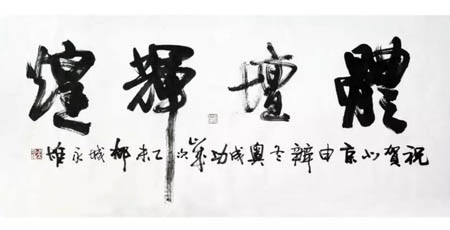 體壇輝煌
祝賀北京申辦冬奧成功歲次乙未柳城永